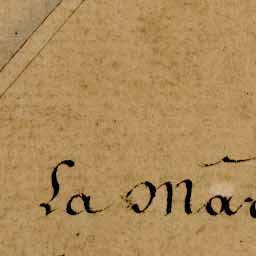 La Mar